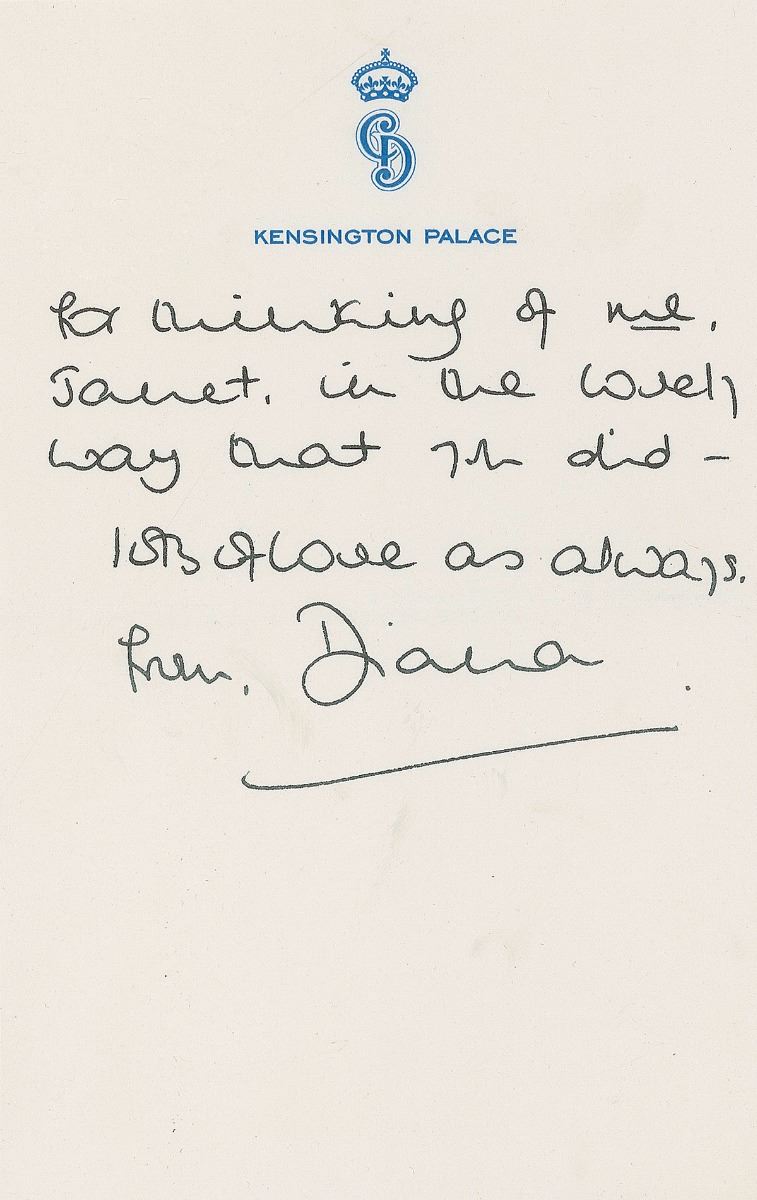 CD
KENSINGTON PALACE
for thinking of me,
Janet, in the lovely
way that you did –
lots of love as always.
from, Diana